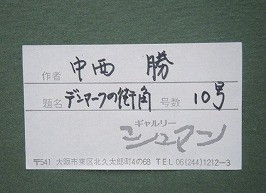 作者 中西 勝
題名 デンマークの街角 号数 10号
ギャルリー
コシュマン
〒541 大阪市東区北久太郎町4の68 TEL 06(244)1212-3